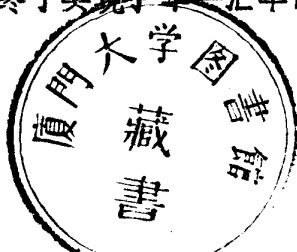 厦門大学图書館
藏
書